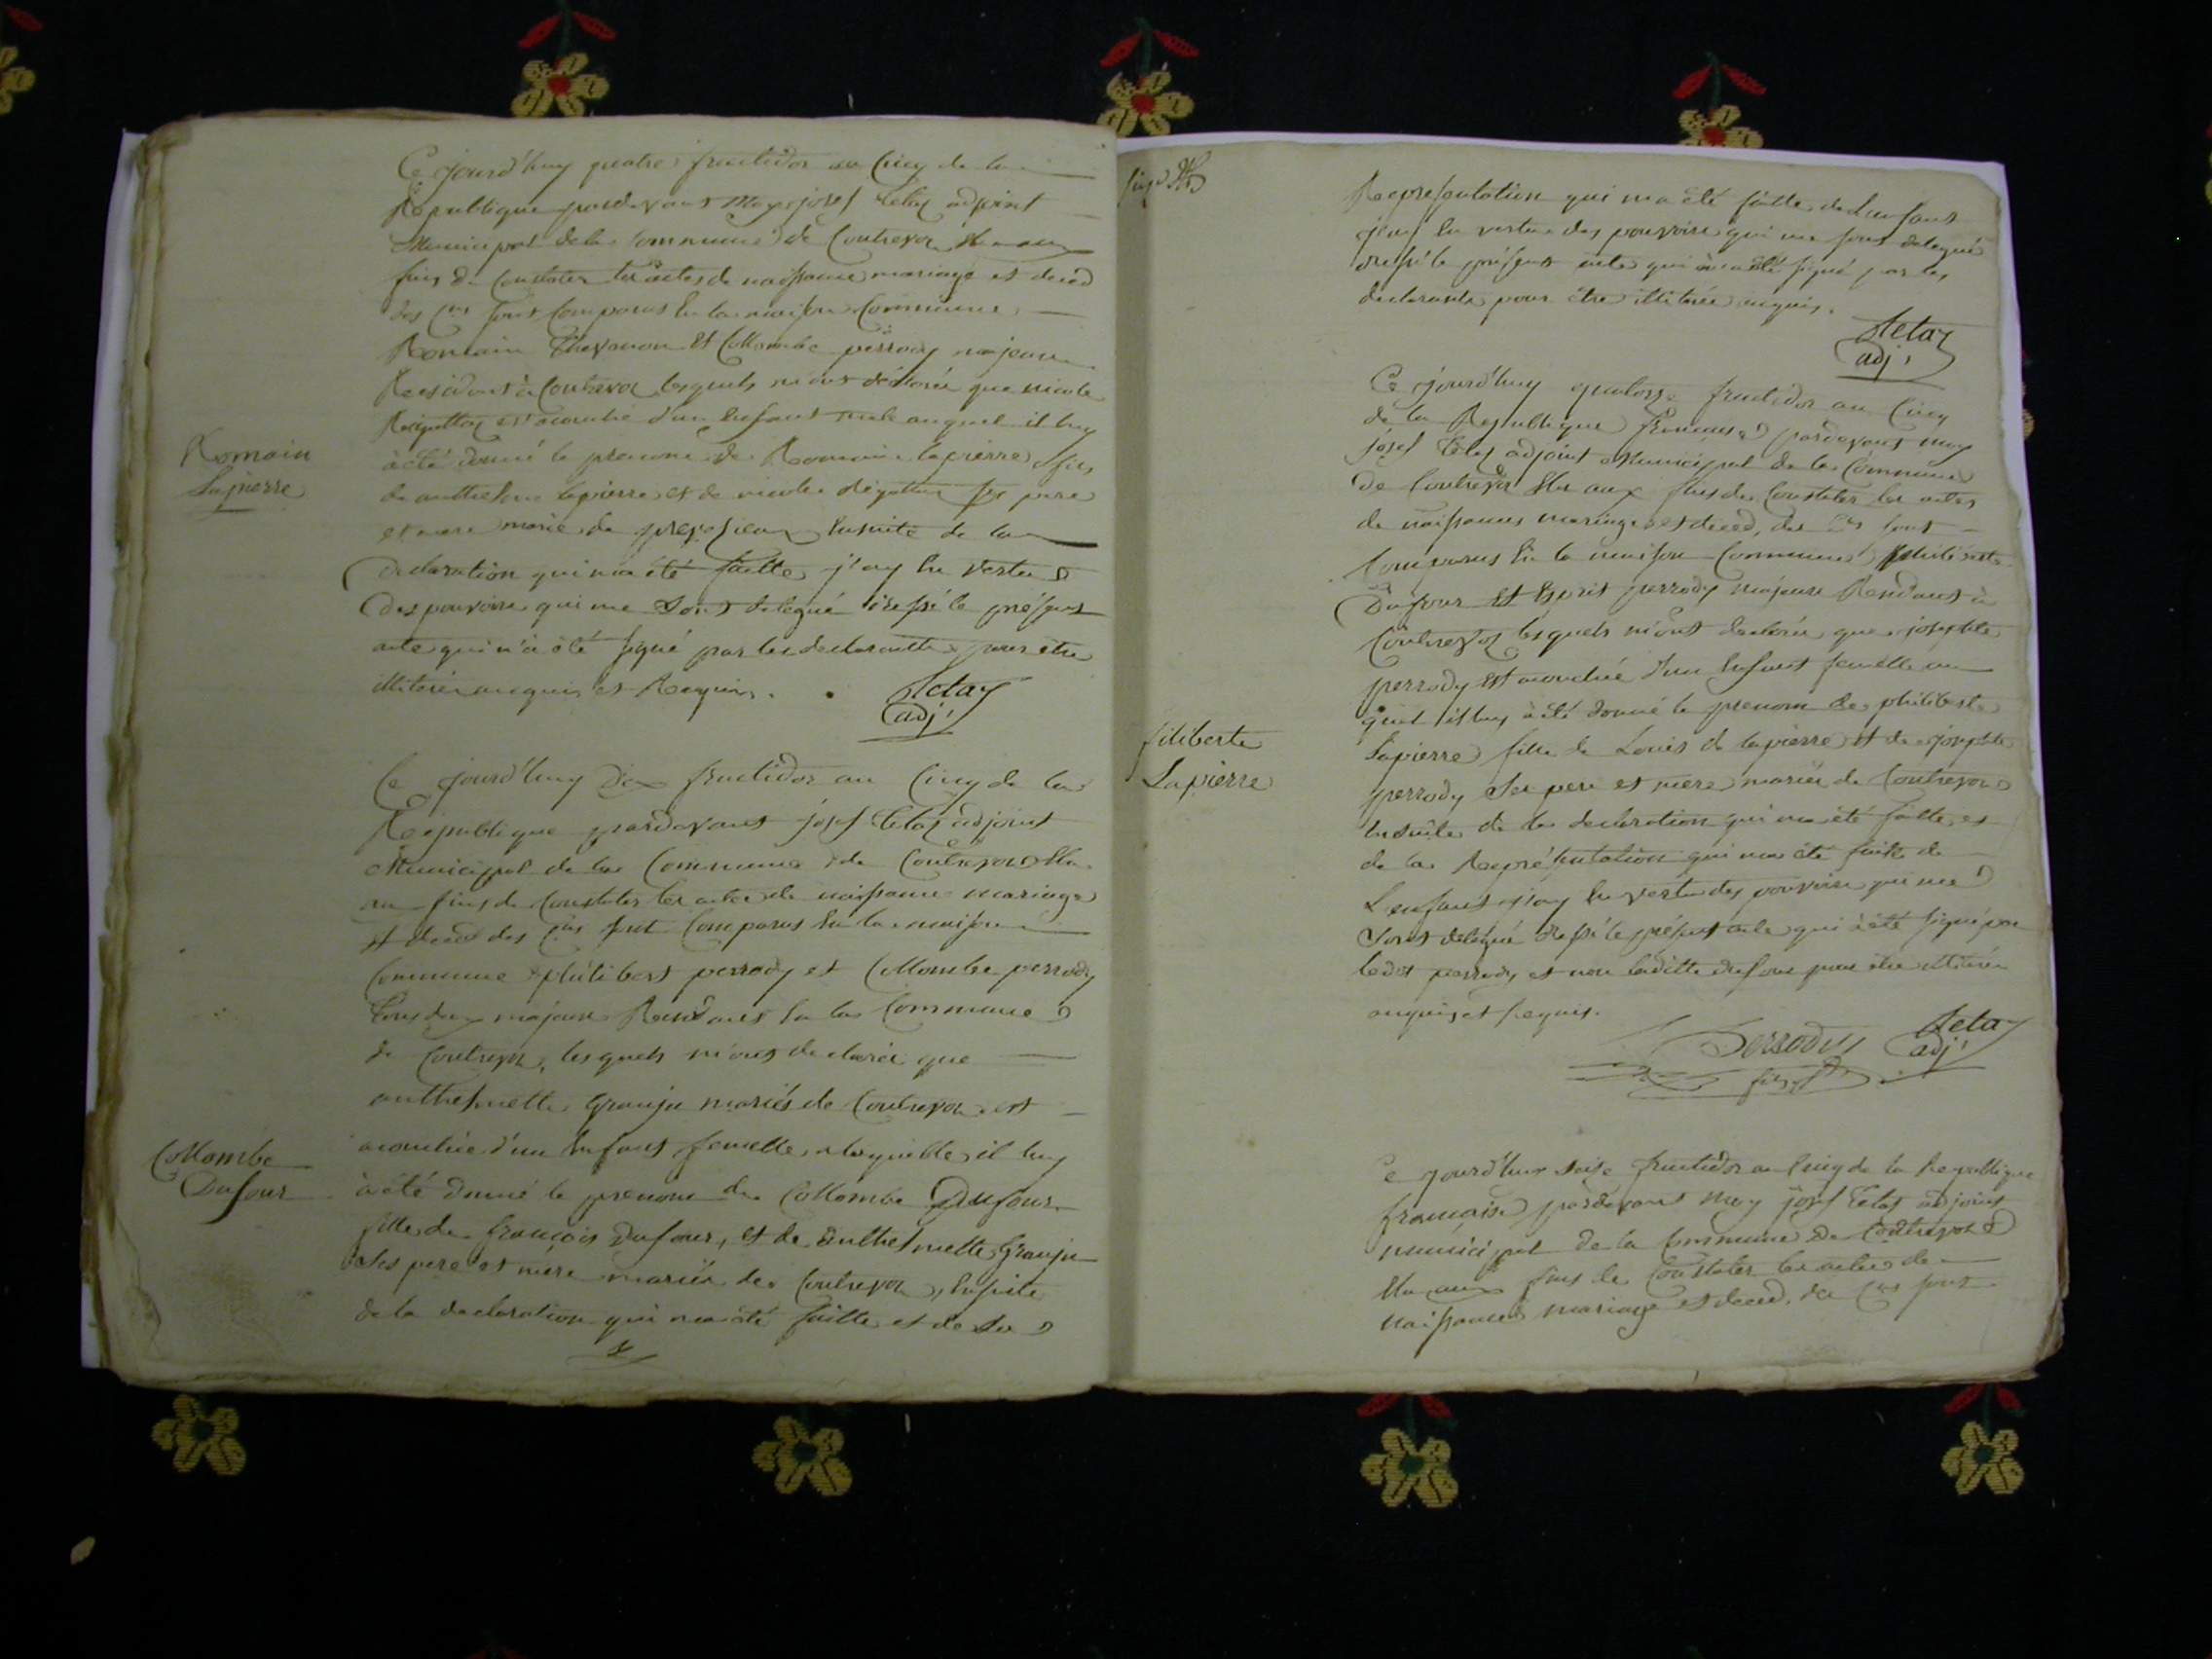 Ce jourd'huy quatre fructidor an Cinq de la
Republique pardevant Moy josef tetaz adjoint
Municipal de la Commune de Contrevoz Elu aux
fins de Constater les actes de naissance mariage et deced
des Cns sont Comparus En la maison Commune
Romain Thevenon Et Collombe perrody majeure
Residant à Contrevoz lesquels m'ont déclarée que nicole
est acouchée d'un Enfant male auquel il luy
à été donné le prenome de Romain lapierre fils
de anthelme lapierre et de nicole ses pere
et mere marié de Ensuite de la
declaration qui m'a été faitte j'ay En Vertu
des pouvoirs qui me Sont délegué dressé le présent
acte qui n'à été signé par les declarantte pour être
illiterée enquis et Requis.
Romain
Lapierre
Tetaz
adj.t
Ce jourd'huy Dix fructidor an Cinq de la
Republique pardevant josef tetaz adjoint
Municipal de la Commune de Contrevoz Elu
au fins de Constater les actes de naissance mariage
et deced des Cns sont Comparus En la maison
Commune philibert perrody et Collombe perrody
tous deux majeure Residants En la Commune
de Contrevoz, lesquels m'ont declarée que
anthelmette Granju mariés de Contrevoz est
acouchée d'un Enfant femelle a laquelle il luy
à été donné le prenom de Collombe Dufour
fille de françois Dufour, et de anthelmette Granju
Ses pere et mere mariés de Contrevoz, Ensuite
de la declaration qui m'a été faitte et de la
Collombe
Dufour
Representation qui m'a été faitte de l'enfant
j'ay En vertue des pouvoirs qui me sont delegué
dressé le présent acte qui n'a été signé par les
declarants pour être illiterée enquis.
Tetaz
adj.t
Ce jourd'huy quatorze fructidor an Cinq
de la Republique francaise pardevant moy
josef tetaz adjoint Municipal de la Commune
de Contrevoz Elu aux fins de Constater les actes
de naissances mariage et deced, des Cns sont
Comparus En la maison Commune philiberte
Dufour Et Esprit perrody majeure Residants à
Contrevoz lesquels m'ont declarée que josephte
perrody est acouchée d'un Enfant femelle au
quel il luy à été donné le prenom de philiberte
Lapierre fille de Louis de lapierre et de josephte
perrody Ses pere et mere mariés de Contrevoz
Ensuite de la declaration qui m'a été faitte et
de la Representation qui m'a été faite de
L'enfant j'ay En vertu des pouvoirs qui me
Sont delegué dressé le présent acte qui à été signé par
ledit perrody et non laditte dufour pour être illiterée
enquis et requis.
filiberte
Lapierre
Perrody
Tetaz
adj.t
Ce jourd'huy seize fructidor an Cinq de la Republique
française pardevant moy josef tetaz adjoint
municipal de la Commune de Contrevoz
Elu aux fins de Constater les actes de
naissances mariage et deced, des Cns sont